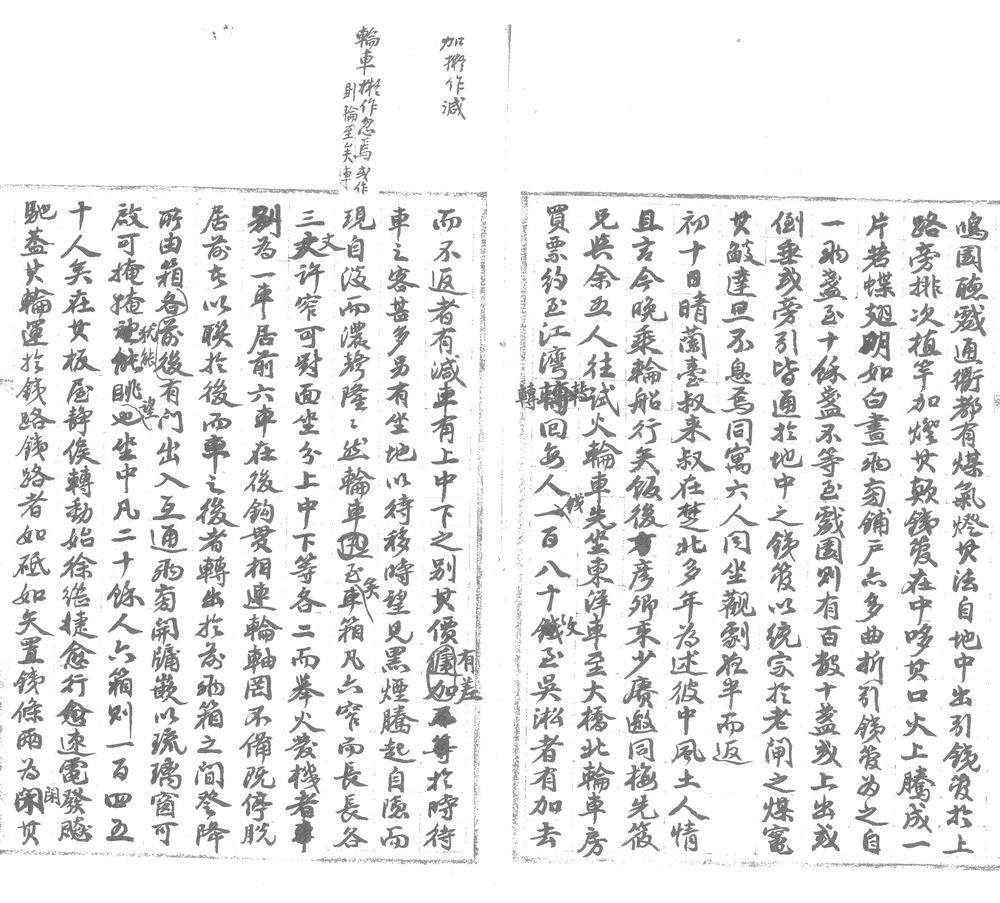 鳴園聽戲通衢都有煤氣燈其法自地中出引鐵管於上
路旁排次植竿加燈其顛鐵管在中哆其口火上騰成一
片若蝶翅明如白晝兩旁鋪戶亦多曲折引鐵管為之自
一兩盞至十餘盞不等至戲園則有百數十盞或上出或
倒垂或旁引皆通於地中之鐵管以統宗於老閘之煤竈
其皷達旦不息焉同寓六人同坐觀劇夜半而返
初十日晴蘭臺叔來叔在楚北多年為述彼中風土人情
且言今晚乘輪船行矣飯後彥卿來少賡邀同梅先筱
兄與余五人往試火輪車先坐東洋車至大橋北輪車房
買票約至江灣轉回每人錢一百八十文至吳淞者有加去
而不返者有減車有上中下之別其價有差於時待
車之客甚多另有坐地以待移時望見黑煙騰起自隱而
現自淡而濃聲隆隆然輪車至矣車箱凡六窄而長長各
三丈許窄可對面坐分上中下等各二而舉火發機者
別為一車居前六車在後鉤貫相連輪軸罔不備既停脫
居前者以聯於後而車之後者轉出於前兩箱之間登降
所由箱各前後有門出入互通兩旁開牖嵌以琉璃窗可
啟可掩掩就能眺望坐中凡二十餘人六箱則一百四五
十人矣在其板屋靜俟轉動始徐繼捷愈行愈速電發飈
馳蓋其輪運於鐵路鐵路者如砥如矢置鐵條兩為閑其
加擬作減
輪車擬作忽焉或作
則輪至矣車